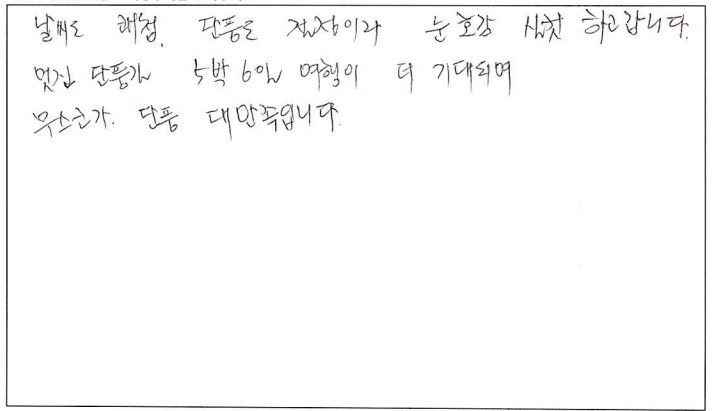 날씨도 쾌청, 단풍도 절정이라 눈 호강 실컷 하고 갑니다.
멋진 단풍길 5박 6일 여행이 더 기대되며
단풍 대만족입니다.